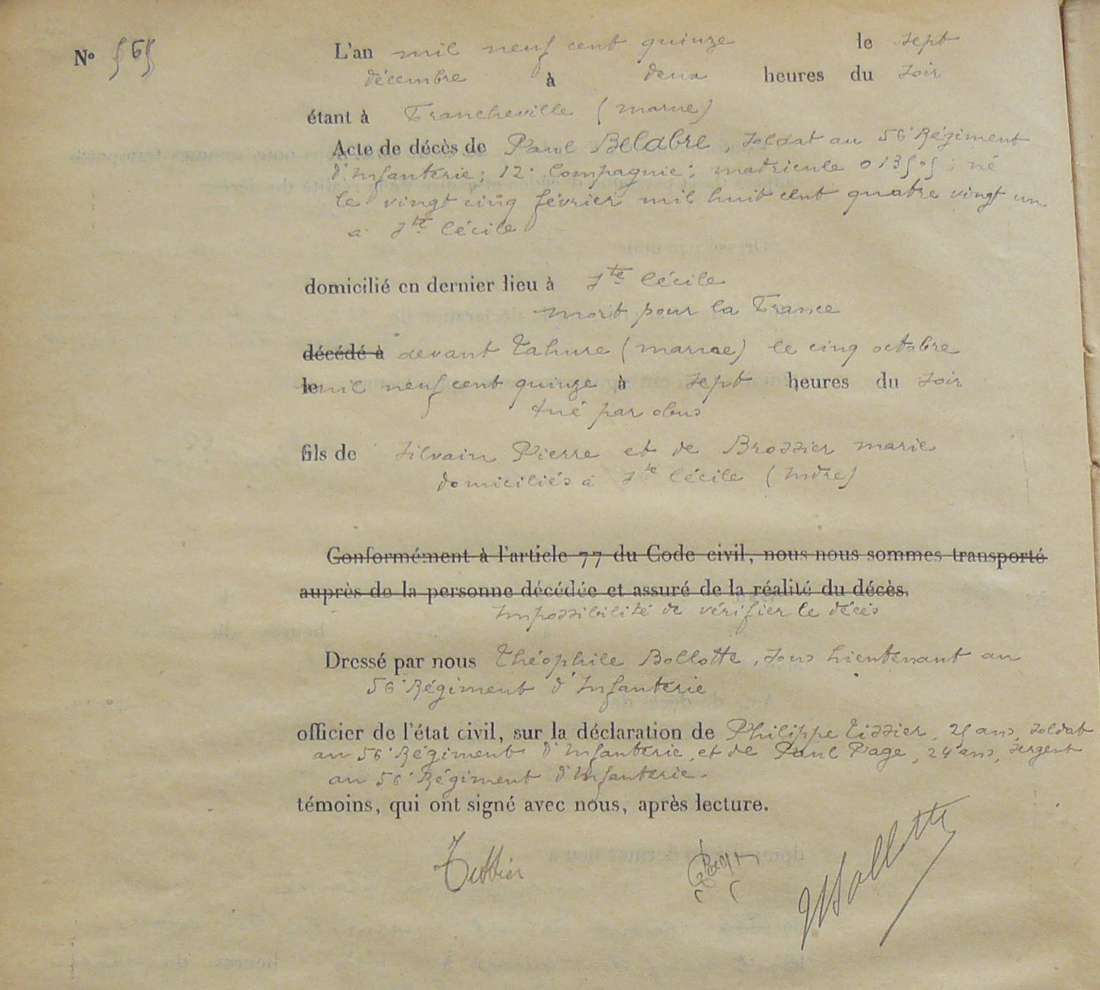 N° 565
L'an mil neuf cent quinze le sept
décembre à deux heures du soir
étant à Francheville (marne)
Acte de décès de Paul Belabre, soldat au 56e Régiment
d'Infanterie; 12e Compagnie; matricule 013505; né
le vingt cinq février mil huit cent quatre vingt un
à Ste Cécile
domicilié en dernier lieu à Ste Cécile
mort pour la France
décédé à devant Tahure (marne) le cinq octobre
le mil neuf cent quinze à sept heures du soir
tué par obus
fils de Silvain Pierre et de Brossier marie
domiciliés à Ste Cécile (Indre)
Conformément à l'article 77 du Code civil, nous nous sommes transporté
auprès de la personne décédée et assuré de la réalité du décès.
Impossibilité de vérifier le décès
Dressé par nous Théophile Bollotte, sous Lieutenant au
56e Régiment d'Infanterie
officier de l'état civil, sur la déclaration de Philippe Tissier, 25 ans, soldat
au 56e Régiment d'Infanterie, et de Paul Page, 24 ans, sergent
au 56e Régiment d'Infanterie.
témoins, qui ont signé avec nous, après lecture.
Tissier Page Bollotte